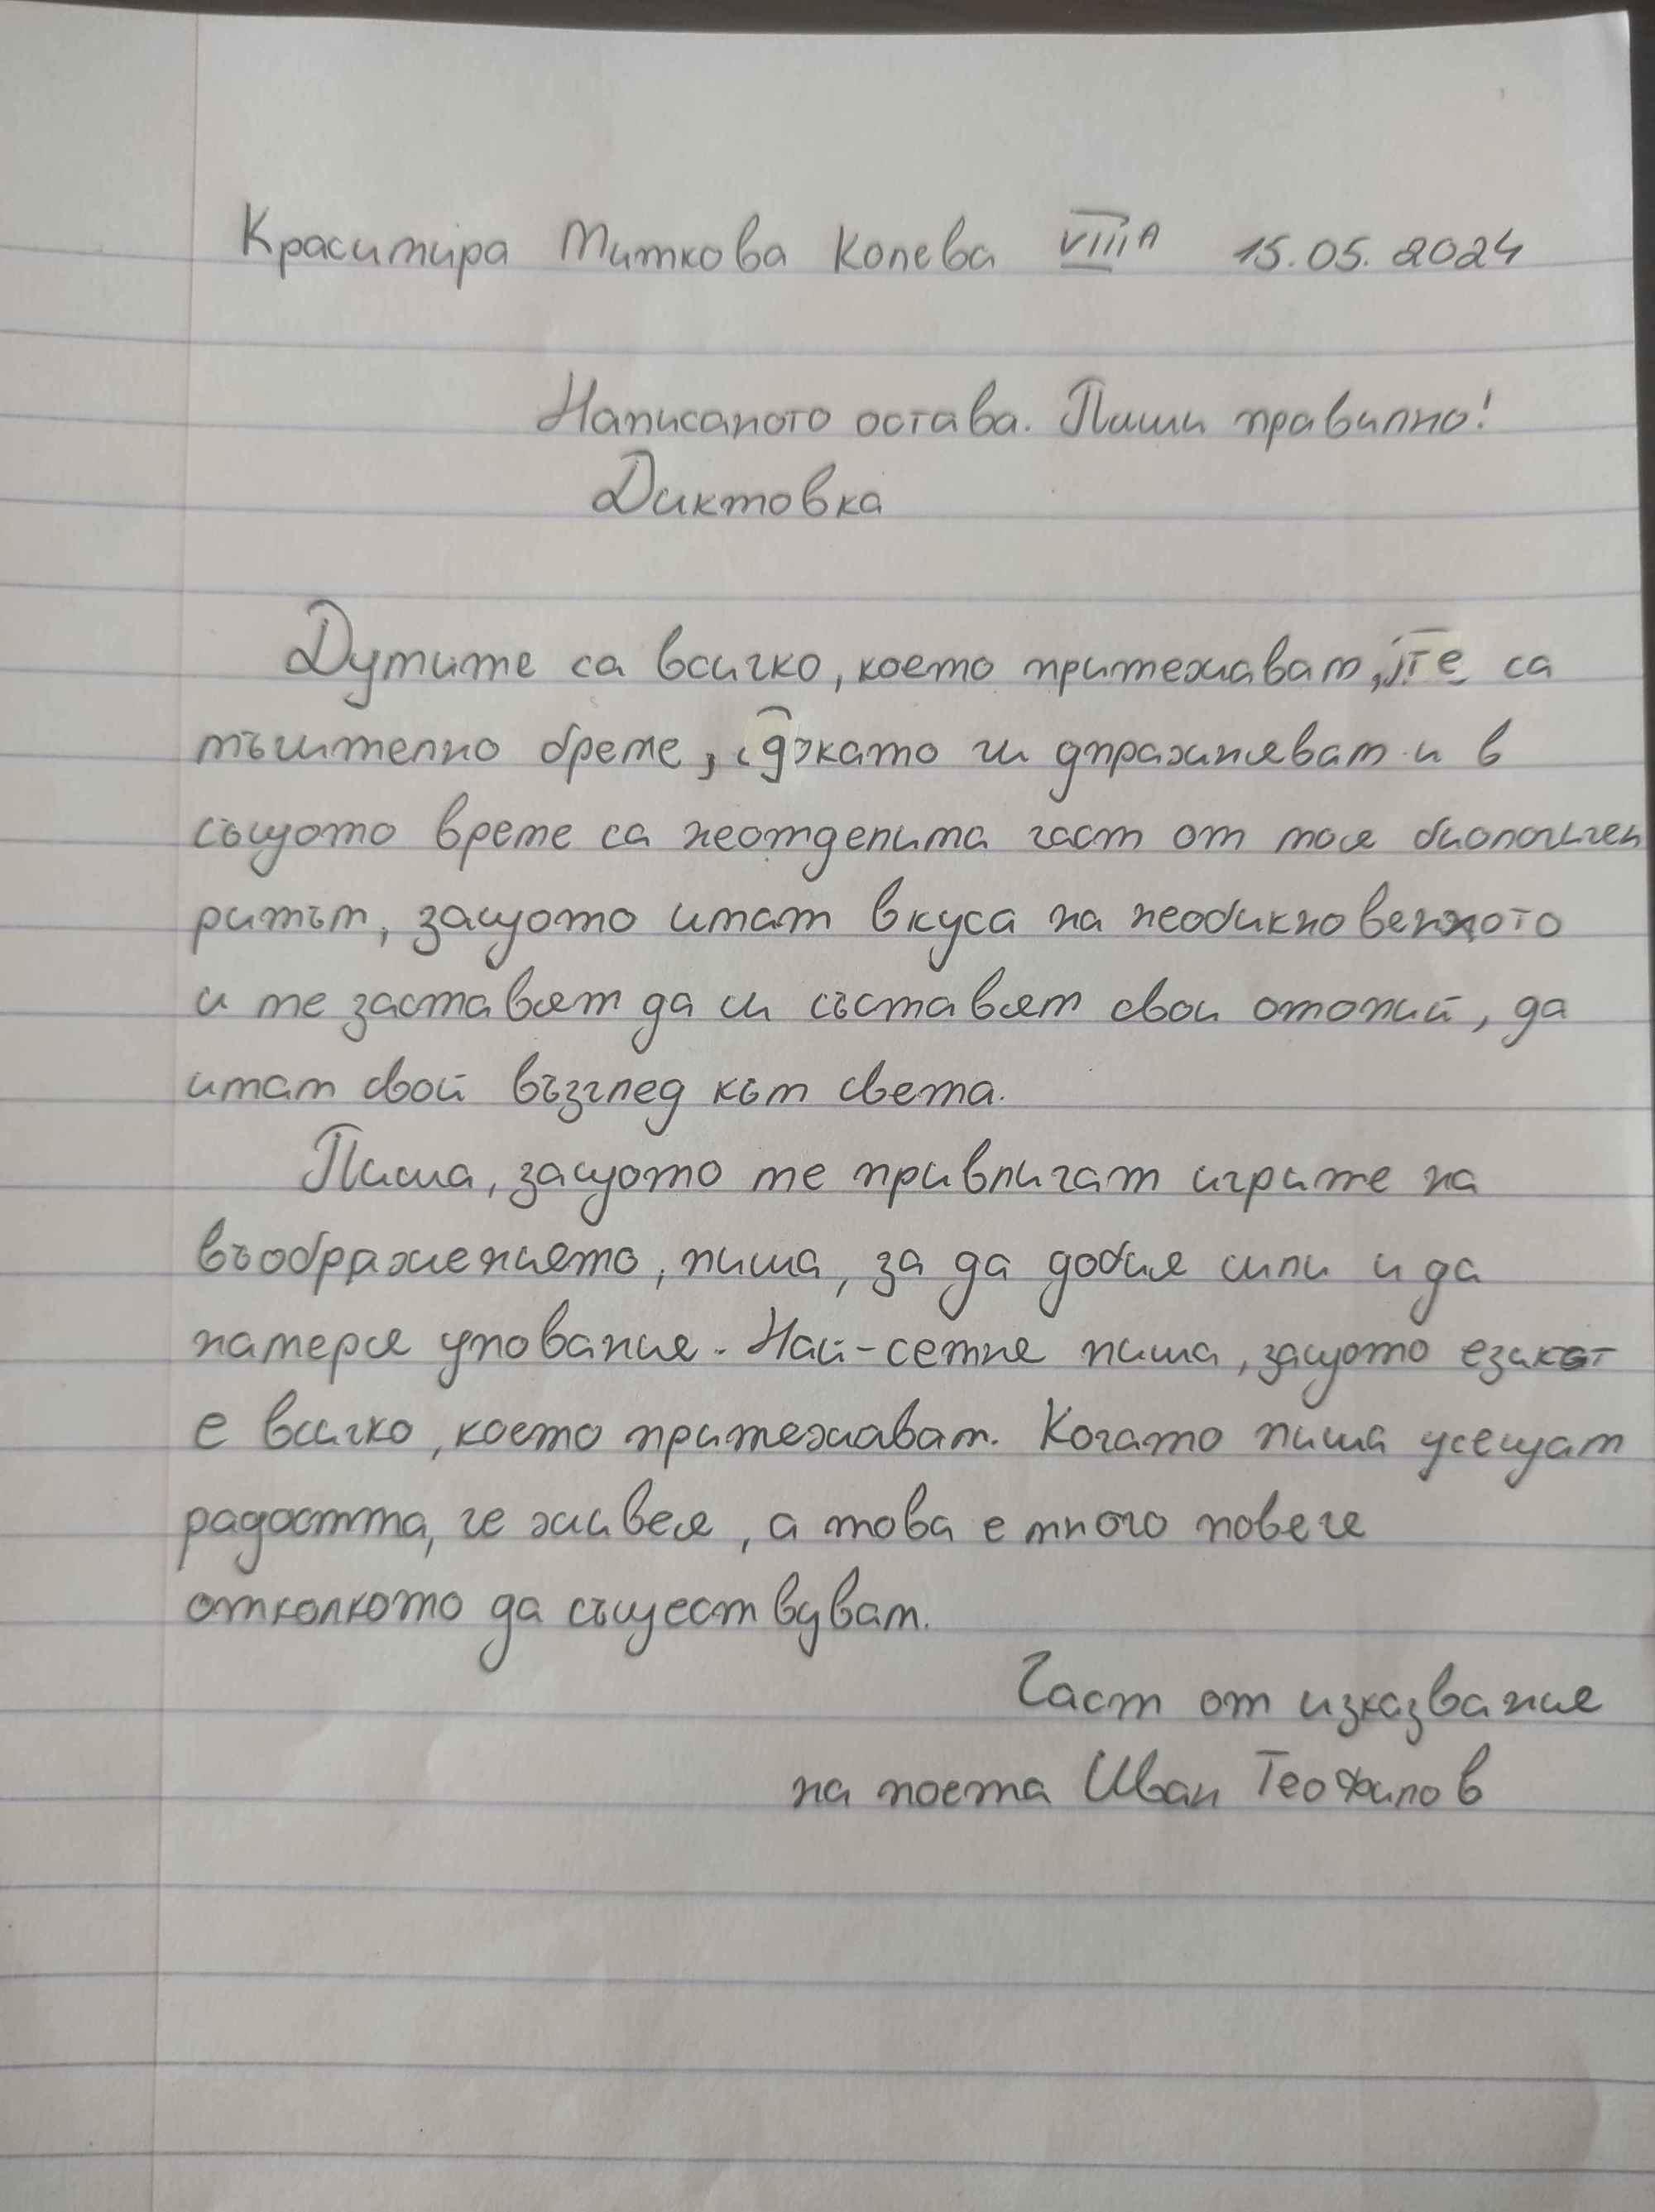 Красимира Миткова Колева VIII А 15.05.2024
Написаното остава. Пиши правилно!
Диктовка
Думите са всичко, което притежавам, те са
мъчително бреме, докато ги упражнявам и в
същото време са неотделима част от моя биологичен
ритъм, защото имат вкуса на необикновеното
и те заставят да си съставям свои омоний, да
имам свой възглед към света.
Пиша, защото ме привличат игрите на
въображението, пиша, за да добия сили и да
намеря упование. Най-сетне пиша, защото езикът
е всичко, което притежавам. Когато пиша усещам
радостта, че живея, а това е много повече
отколкото да съществувам.
Част от изказвания
на поета Иван Теофилов